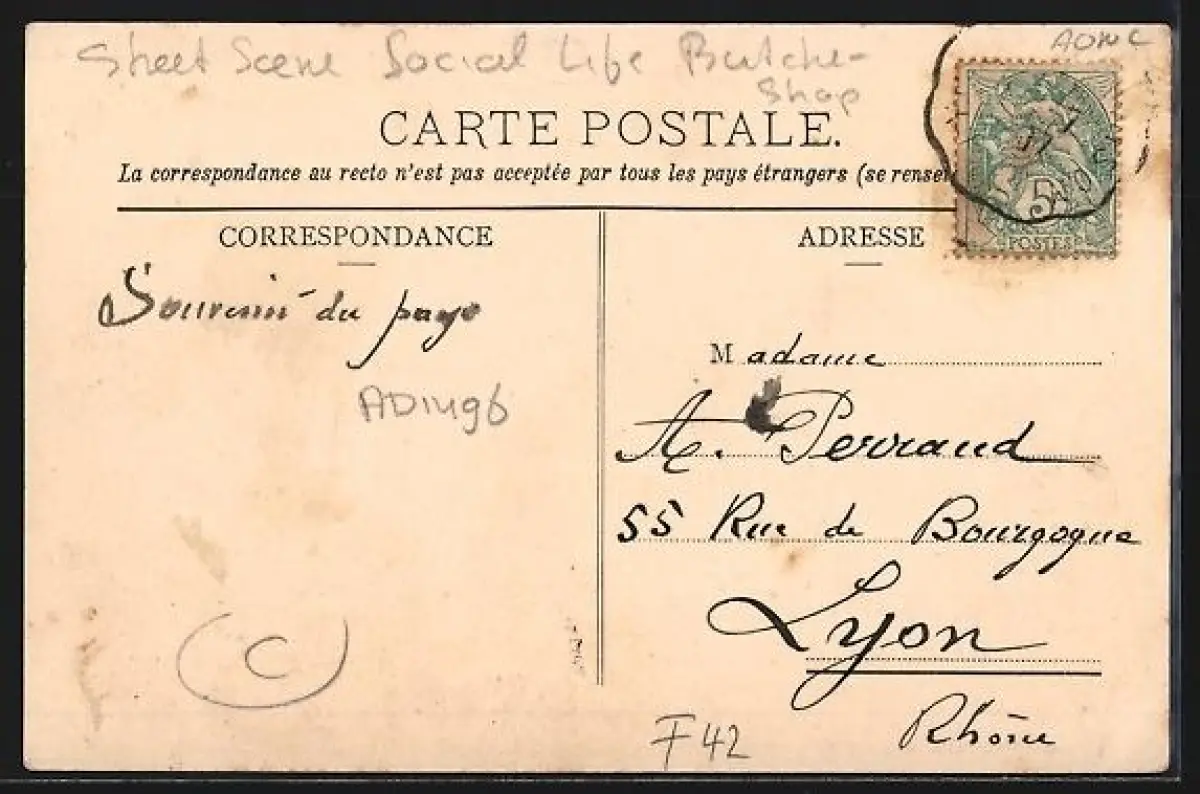 Street Scene Social Life Butcher
Shop
AONC
CARTE POSTALE.
La correspondance au recto n'est pas acceptée par tous les pays étrangers (se rensei
CORRESPONDANCE
ADRESSE
5
POSTES
Souvenir du pays
AD1496
Madame
A. Perraud
55 Rue de Bourgogne
Lyon
Rhône
C
F42